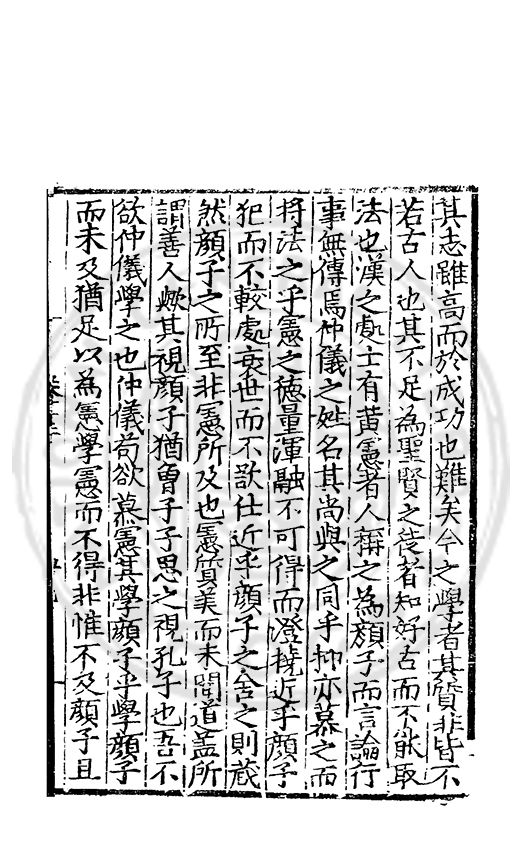 其志雖高而於成功也難矣今之學者其質非皆不
若古人也其不足為聖賢之徒者知好古而不能取
法也漢之處士有黃憲者人稱之為顏子而言論行
事無傳焉仲儀之姓名其尚與之同乎抑亦慕之而
將法之乎憲之德量渾融不可得而澄撓近乎顏子
犯而不較處衰世而不歆仕近乎顏子之舍之則蔵
然顏子之所至非憲所及也憲質美而未聞道盖所
謂善人歟其視顏子猶曽子子思之視孔子也吾不
欲仲儀學之也仲儀苟欲慕憲其學顏子乎學顏子
而未及猶足以為憲學憲而不得非惟不及顏子且